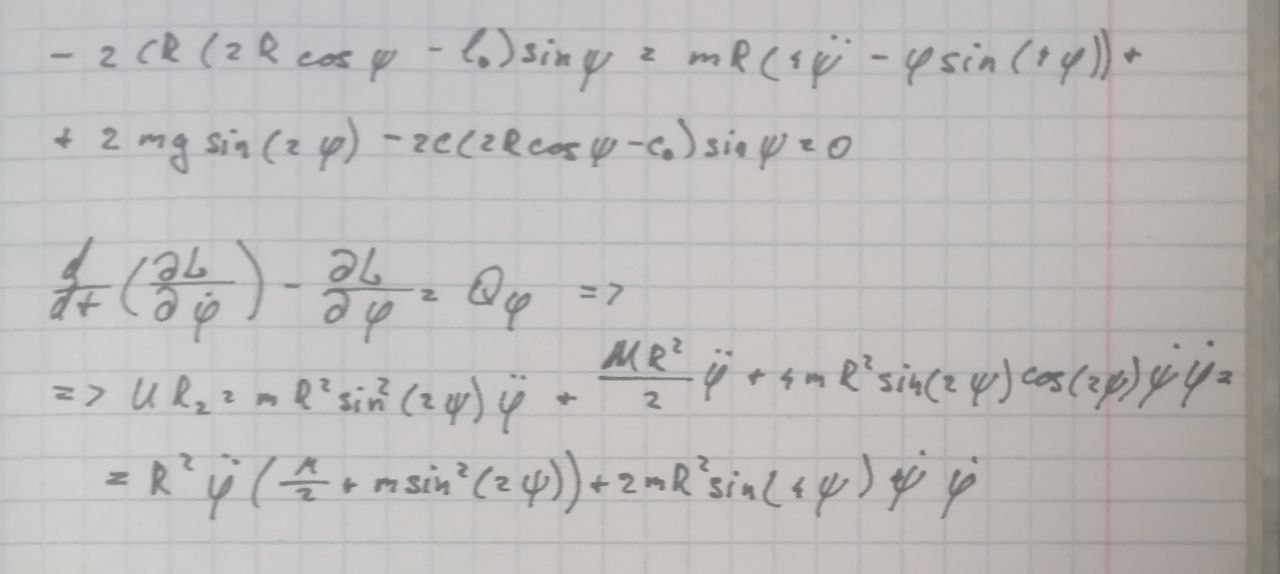 - 2 CR (2 R cos ψ - l₀) sin ψ = mR (4 ψ̈ - φ sin (4 φ)) +
+ 2 mg sin (2 φ) - 2c (2R cos ψ - c₀) sin ψ = 0
d/dt (∂L/∂φ̇) - ∂L/∂φ = Qφ =>
=> U R₂ = m R² sin² (2ψ) φ̈ + MR²/2 φ̈ + 4 m R² sin(2ψ) cos(2ψ) ψ̇ φ̇ =
= R² φ̈ (M/2 + m sin² (2ψ)) + 2 m R² sin (4ψ) ψ̇ φ̇